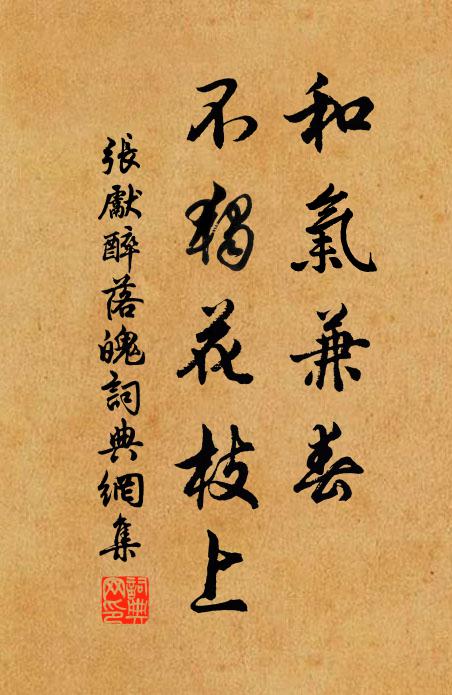 和氣兼春
不獨花枝上
張獻醉落魄詞典網集
詞典网印